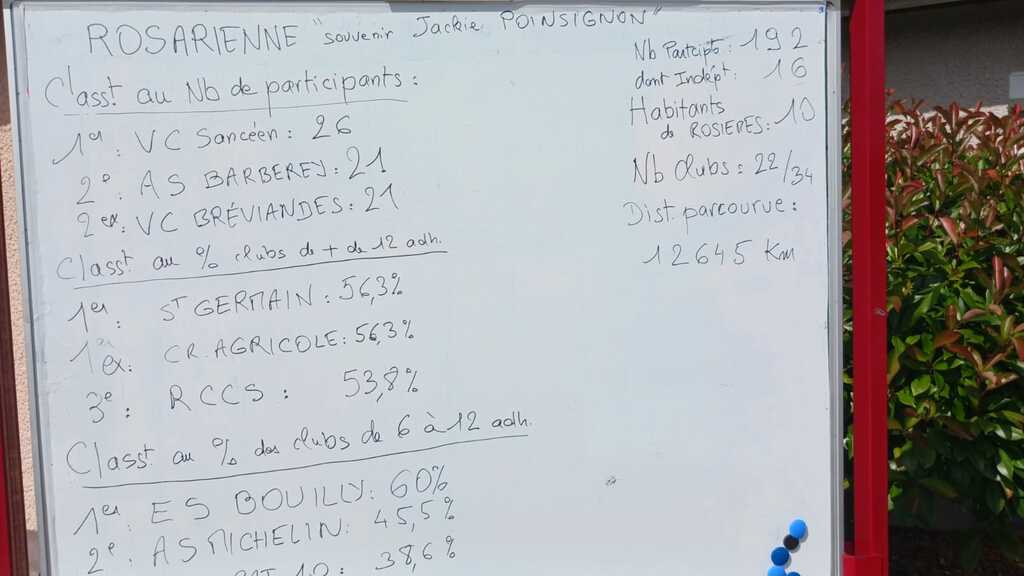 ROSARIENNE "souvenir Jackie POINSIGNON"
Class^t au Nb de participants :
1er : VC Sancéen : 26
2e : AS BARBEREY : 21
2ex : VC BRÉVIANDES : 21
Class^t au % clubs de + de 12 adh.
1er : S^T GERMAIN : 56,3%
1ex : CR. AGRICOLE : 56,3%
3e : RCCS : 53,8%
Class^t au % des clubs de 6 à 12 adh.
1er : ES BOUILLY : 60%
2e : AS MICHELIN : 45,5%
10 : 38,6%
Nb Partcipts : 192
dont Indépt : 16
Habitants
de ROSIERES : 10
Nb Clubs : 22/34
Dist. parcourue :
12645 Km